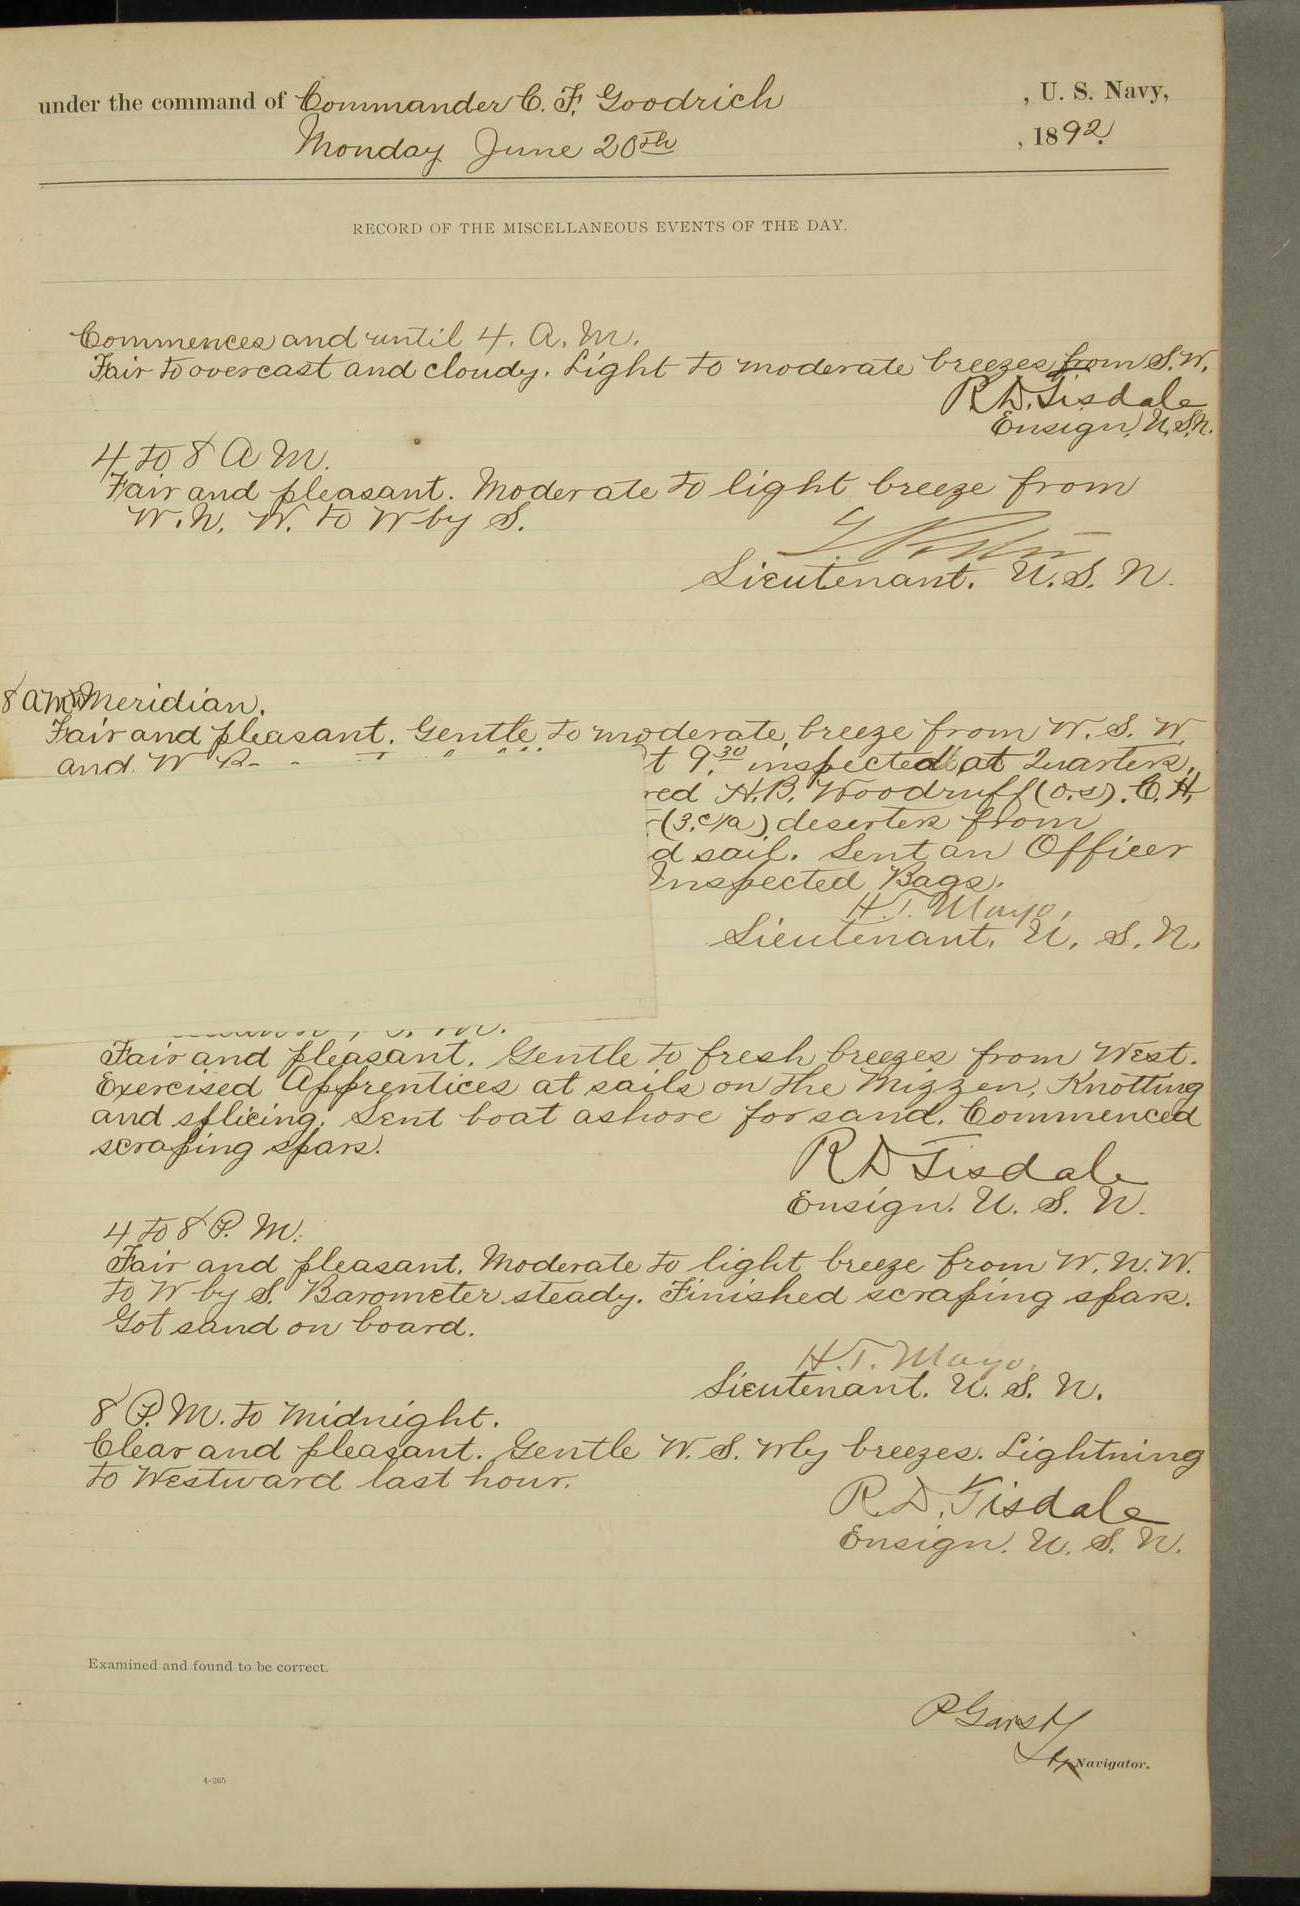 under the command of Commander C. F. Goodrich , U. S. Navy,
Monday June 20th , 1892.
RECORD OF THE MISCELLANEOUS EVENTS OF THE DAY.
Commences and until 4. A. M.
Fair to overcast and cloudy. Light to moderate breezes from S.W.
R. D. Tisdale
Ensign, U.S.N.
4 to 8 A M.
Fair and pleasant. Moderate to light breeze from
W. N. W. to W by S.
Lieutenant. U. S. N.
8 am to Meridian.
Fair and pleasant. Gentle to moderate breeze from W. S. W.
and W 9.30 inspected at Quarters.
H. B. Woodruff (O.S). C. H.
(3.c/a) deserters from
sail. Sent an Officer
Inspected Bags.
H. T. Mayo,
Lieutenant. U. S. N.
Fair and pleasant. Gentle to fresh breezes from West.
Exercised Apprentices at sails on the Mizzen, Knotting
and splicing. Sent boat ashore for sand. Commenced
scraping spars.
R D Tisdale
Ensign. U. S. N.
4 to 8 P. M.
Fair and pleasant. Moderate to light breeze from W. N. W.
to W by S. Barometer steady. Finished scraping spars.
Got sand on board.
H. T. Mayo.
Lieutenant. U. S. N.
8 P. M. to Midnight.
Clear and pleasant. Gentle W. S. Wly breezes. Lightning
to Westward last hour.
R. D. Tisdale
Ensign. U. S. N.
Examined and found to be correct.
P Garst
Navigator.
4-265